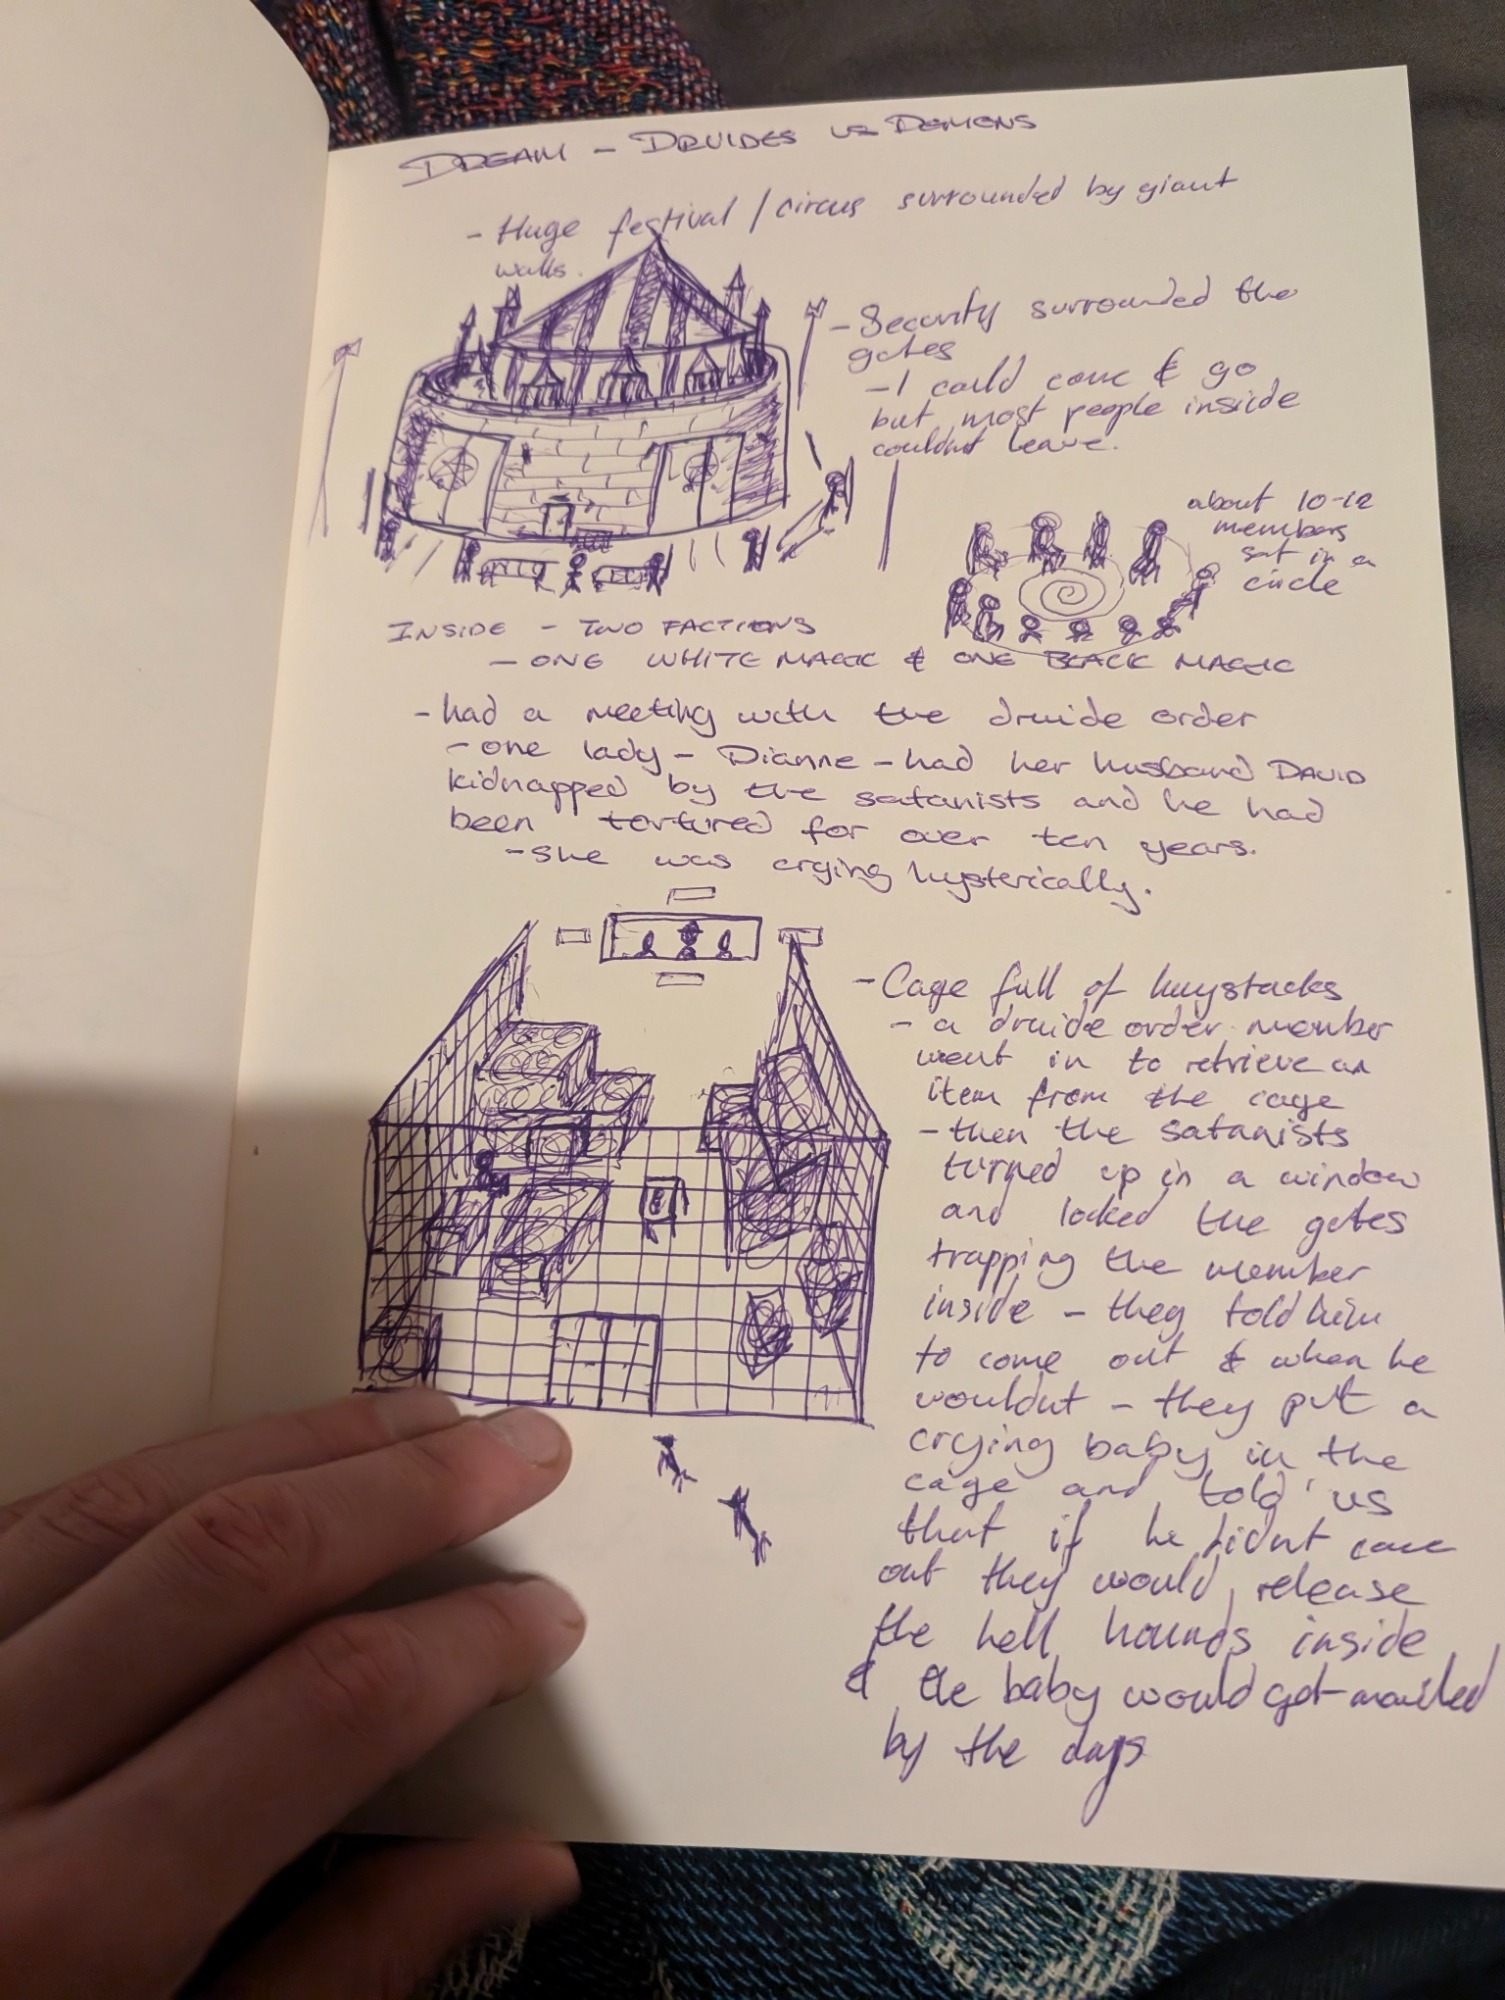 DREAM - DRUIDES VS DEMONS
- Huge festival / circus surrounded by giant
walls.
- Security surrounded the
gates
- I could come & go
but most people inside
couldnt leave.
about 10-12
members
sat in a
circle
INSIDE - TWO FACTIONS
- ONE WHITE MAGIC & ONE BLACK MAGIC
- had a meeting with the druide order
- one lady - Dianne - had her husband DAVID
kidnapped by the satanists and he had
been tortured for over ten years.
- she was crying hysterically.
- Cage full of haystacks
- a druide order member
went in to retrieve an
item from the cage
- then the satanists
turned up in a window
and locked the gates
trapping the member
inside - they told him
to come out & when he
wouldnt - they put a
crying baby in the
cage and told us
that if he didnt come
out they would release
the hell hounds inside
& the baby would get mauled
by the dogs